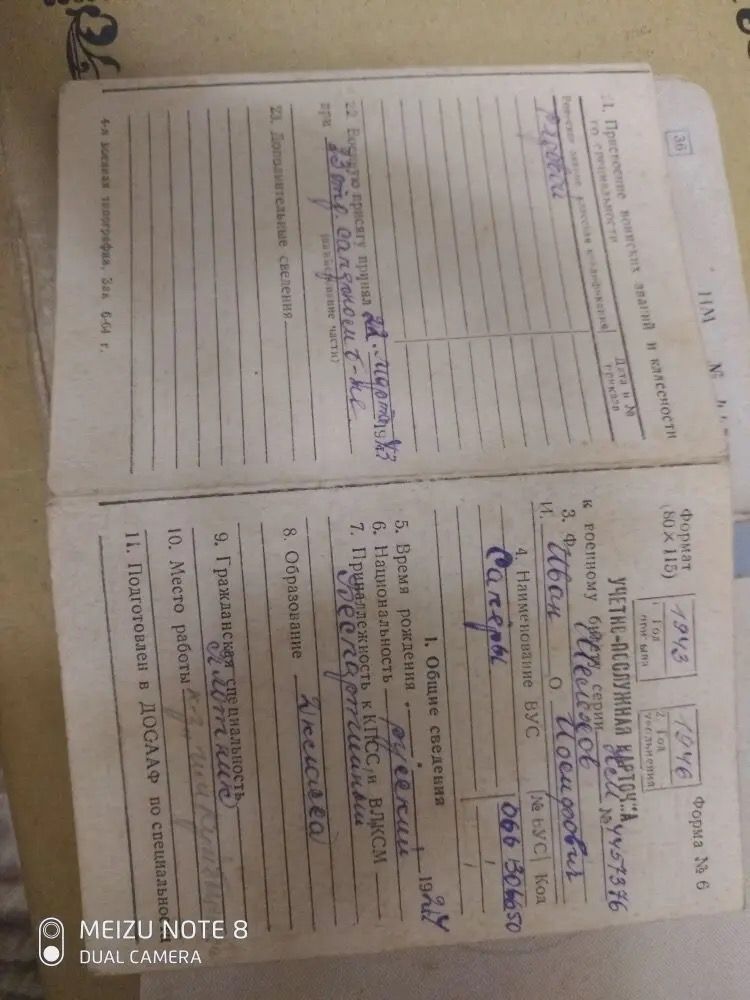 21. Присвоение воинских званий и классности
по специальности
Воинское звание, классная квалификация
Дата и №
приказа
Рядовой
22. Военную присягу принял 22. Марта 1943
при 33 отд. саперном б-не
(наименование части)
23. Дополнительные сведения
4-я военная типография, Зак. 6-64 г.
36
НМ
№
Формат
(80×115)
1943
1. Год
призыва
1946
2. Год
увольнения
Форма № 6
УЧЕТНО-ПОСЛУЖНАЯ КАРТОЧКА
к военному билету серии № 4457376
3. Ф.
И. Иван О. Иосифович
4. Наименование ВУС
№ ВУС
Код
Саперы
066
I. Общие сведения
5. Время рождения 1924
6. Национальность русский
7. Принадлежность к КПСС и ВЛКСМ
беспартийный
8. Образование 2 класса
9. Гражданская специальность
Плотник
10. Место работы к-з
11. Подготовлен в ДОСААФ по специальности
MEIZU NOTE 8
DUAL CAMERA